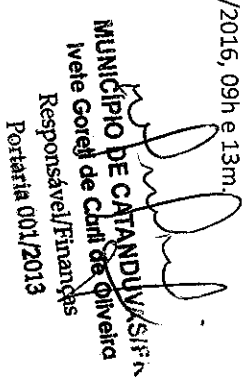 /2016, 09h e 13m.
MUNICÍPIO DE CATANDUVAS/PR
Ivete Goreti de Carli de Oliveira
Responsável/Finanças
Portaria 001/2013